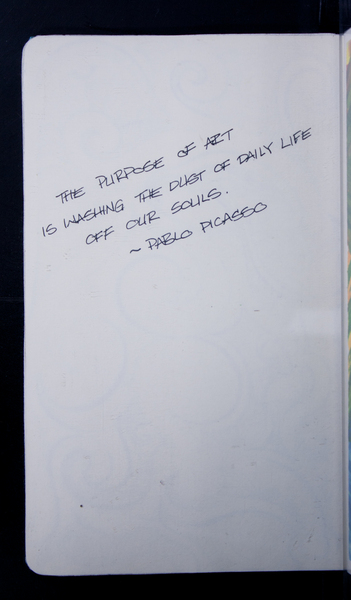 THE PURPOSE OF ART
IS WASHING THE DUST OF DAILY LIFE
OFF OUR SOULS.
~ PABLO PICASSO